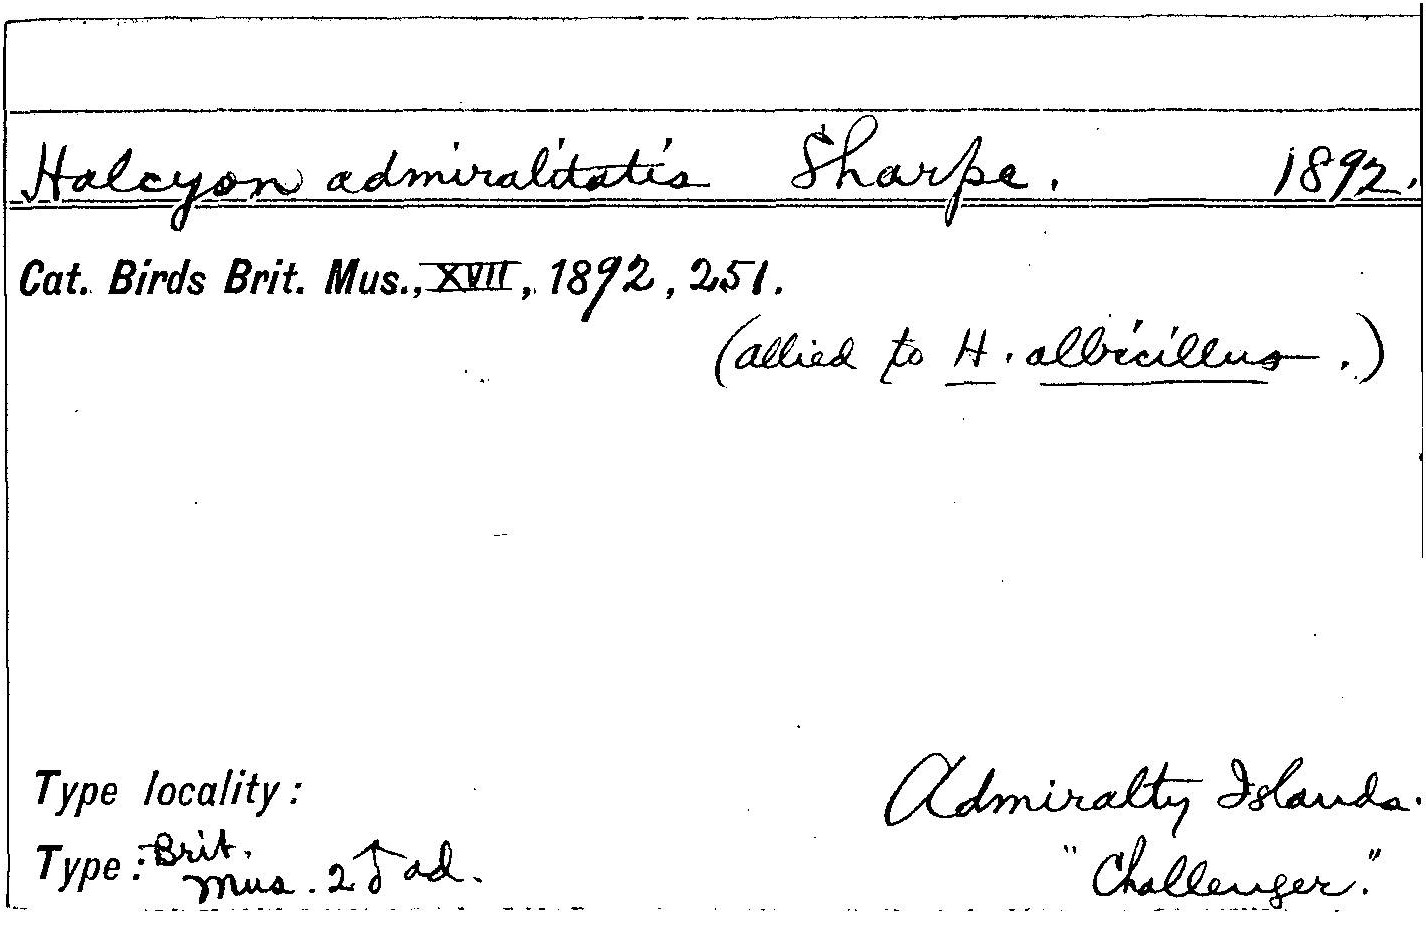 Halcyon admiralitatis Sharpe. 1892.
Cat. Birds Brit. Mus., XVII, 1892, 251.
(allied to H. albicillus.)
Type locality: Admiralty Islands.
Type: Brit. Mus. 2 ♂ ad. "Challenger."